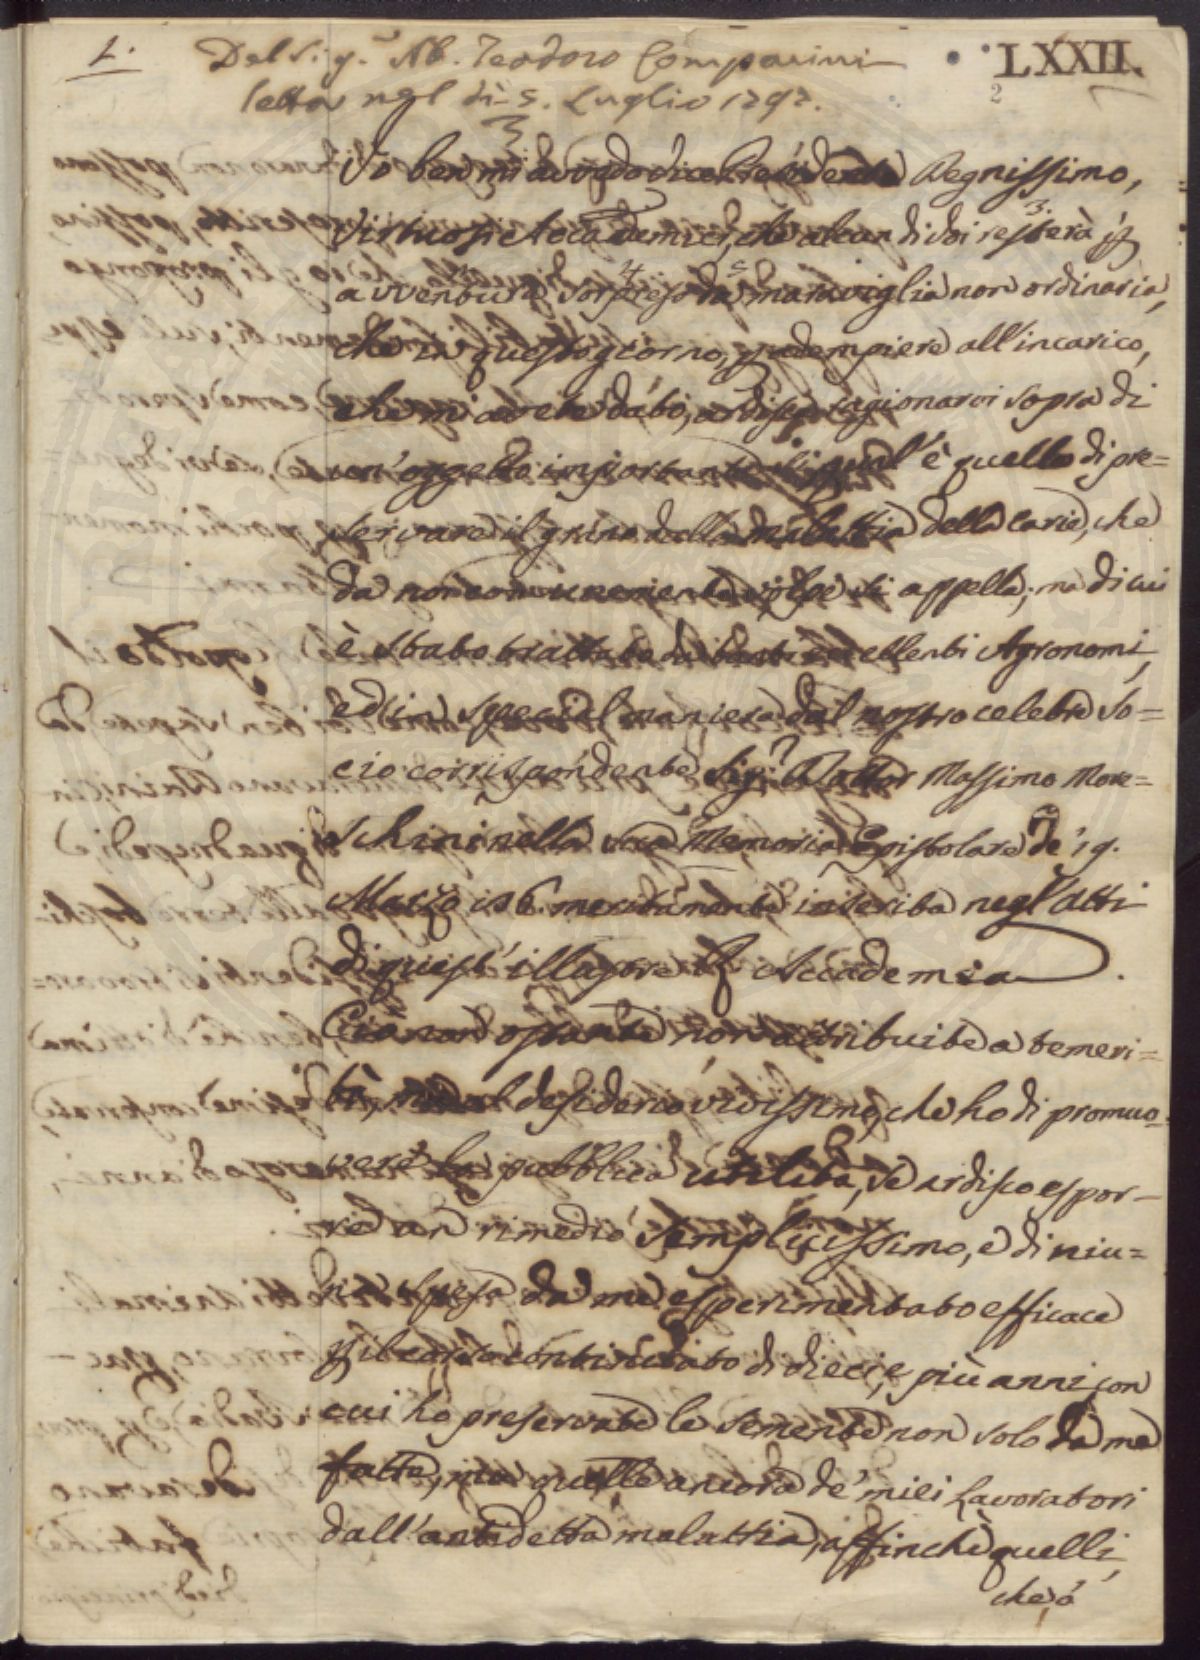 1.
LXXII.
2
Del Sig.r Ab. Teodoro Comparini
letta nel dì 5. Luglio 1792.
Io ben mi avvedo dicere Presidente Degnissimo,
Virtuosi Accademici, che alcun di voi resterà p
avventura sorpreso da maraviglia non ordinaria,
che in questo giorno, p adempiere all'incarico,
che mi avete dato, ardisca ragionarvi sopra di
un'oggetto importante qual'è quello di pre=
servare il grano dalla malattia della carie, che
da noi comunemente volpe si appella; ma di cui
è stato trattato da tanti eccellenti Agronomi,
ed in special maniera dal nostro celebre So=
cio corrispondente Sig.r Dottor Massimo More=
schini nella sua Memoria Epistolare de' 19.
Marzo meritamente inserita negl'Atti
di quest'illustre R. Accademia.
Ciò non ostante non attribuite a temeri=
tà, ma al desiderio vivissimo, che ho di promuo=
vere la pubblica utilità, se ardisco espor=
re un rimedio semplicissimo, e di niu=
na spesa da me esperimentato efficace
p il corso continuato di dieci, e più anni, con
cui ho preservate le semente non solo da me
fatte, ma quelle ancora de' miei Lavoratori
dall'antidetta malattia, affinchè quelli,
che, o